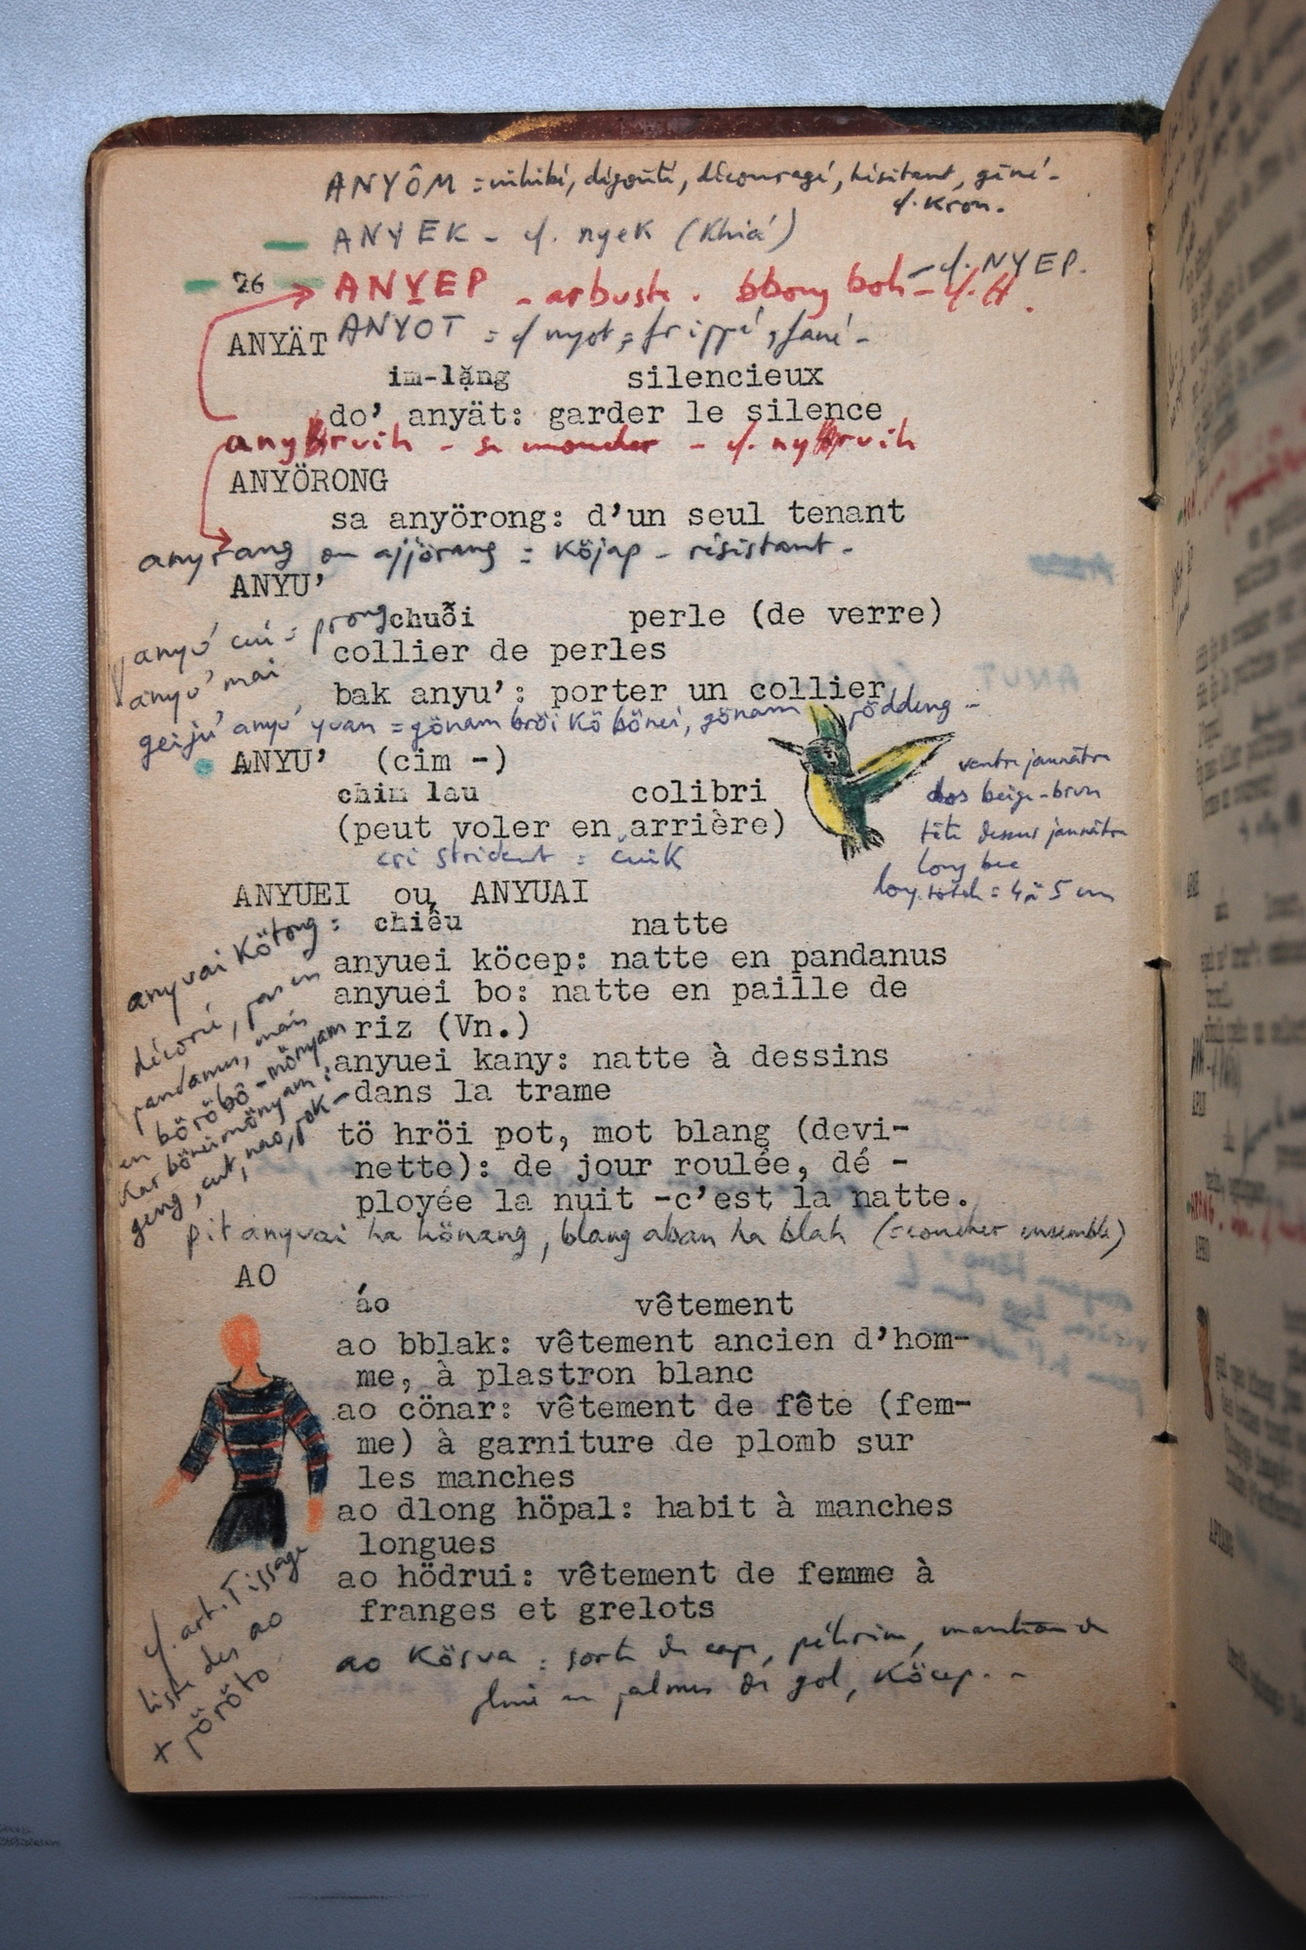 ANYÔM = inhibé, dégoûté, découragé, hésitant, gêné -
cf. Kron.
ANYEK - cf. nyek (Khiá)
- cf. NYEP.
26 ANYEP - arbuste. bbong boh - cf. H.
ANYOT = cf nyot = frippé, fané -
ANYÄT
im-lặng silencieux
do' anyät: garder le silence
se moucher - cf.
ANYÖRONG
sa anyörong: d'un seul tenant
anyrang ou ajjörang = köjap - résistant -
ANYU'
chuỗi perle (de verre)
anyu' cui = prong
collier de perles
anyu' mai
bak anyu': porter un collier
geiju' anyu' yuan = gönam bröi kö bönei, gönam röddeng -
ANYU' (cim -)
chim lau colibri
(peut voler en arrière)
cri strident = cuik
ventre jaunâtre
dos beige-brun
tête dessus jaunâtre
long bec
long. totale = 4 à 5 cm
ANYUEI ou ANYUAI
chiếu natte
anyuei köcep: natte en pandanus
anyuei bo: natte en paille de
riz (Vn.)
anyuei kany: natte à dessins
dans la trame
tö hröi pot, mot blang (devi-
nette): de jour roulée, dé -
ployée la nuit -c'est la natte.
anyvai kötong :
décoré, pas en
pandanus, mais
en böröbô - mönyam
kar bönei mönyam :
geng, cut, nao, rok -
pit anyvai ha könang, blang aban ha blah (= coucher ensemble)
AO
áo vêtement
ao bblak: vêtement ancien d'hom-
me, à plastron blanc
ao cönar: vêtement de fête (fem-
me) à garniture de plomb sur
les manches
ao dlong höpal: habit à manches
longues
ao hödrui: vêtement de femme à
franges et grelots
cf. art. Tissage
liste des ao
+ röröto
ao kösva : sorte de cape, pélerine, manteau de
pluie en palmes de gol, köcep. -